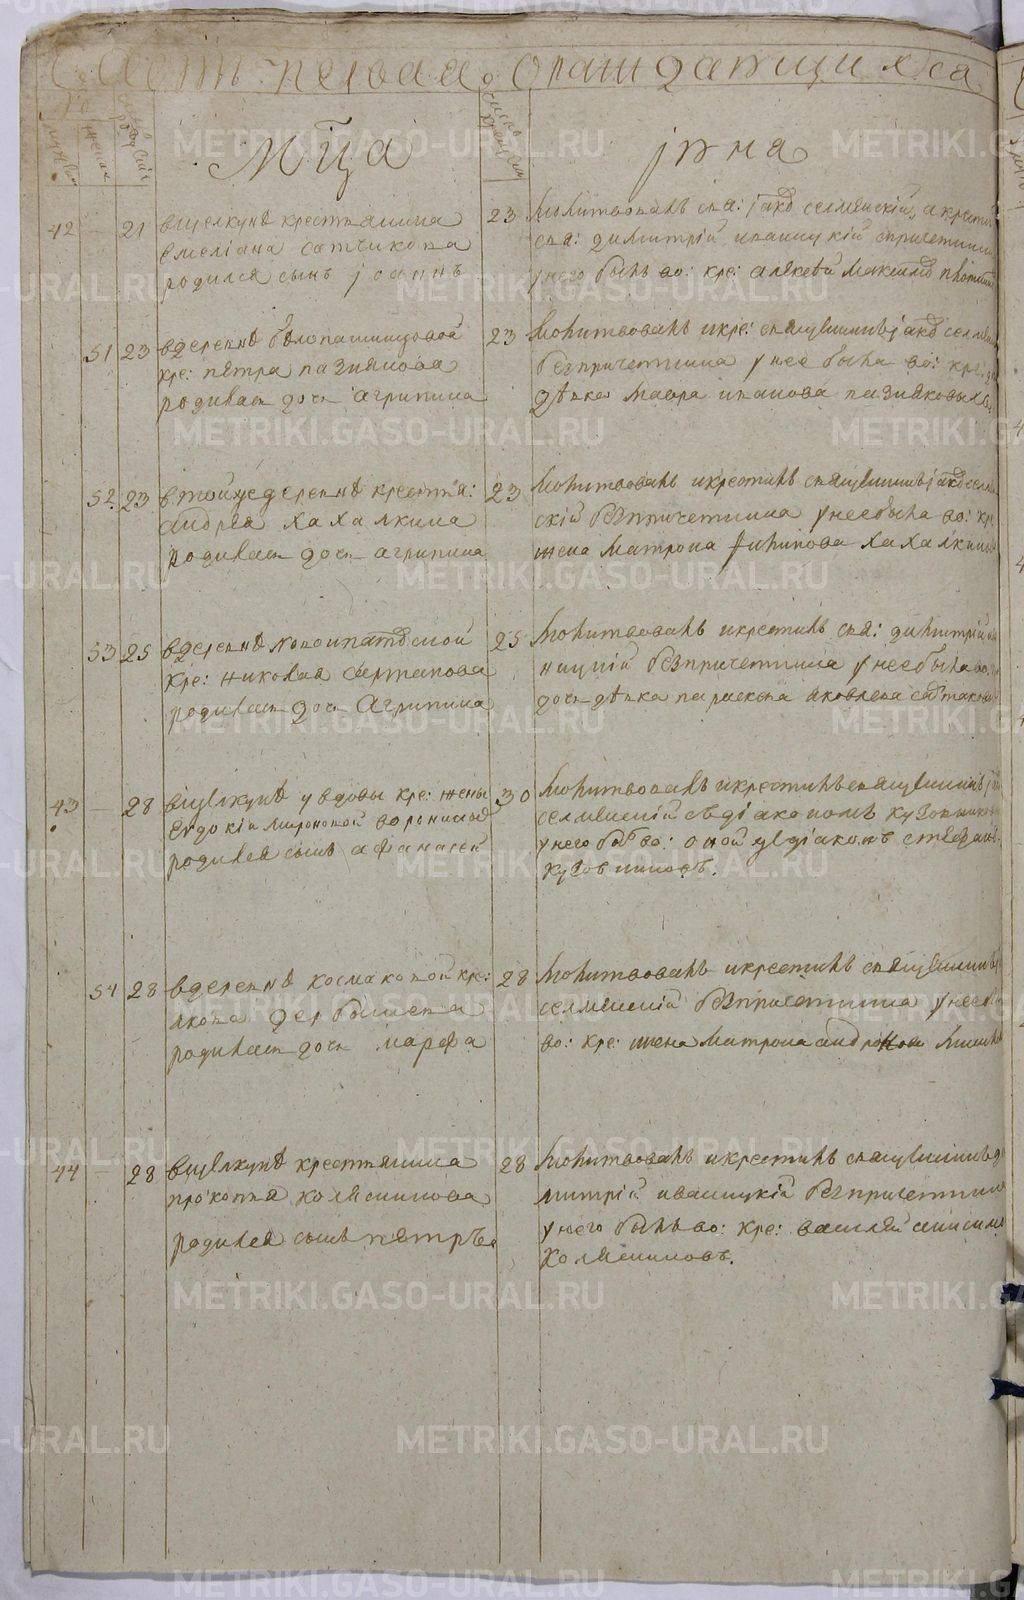 Часть первая о раждающихся
Мца июня
42 21 вщелкунѣ крестьянина
емелiана сатчикова
родился сынъ iоаннъ
23 Молитвовалъ свя: iако селменскiй, а крестил
свя: димитрiй иваницкiй
у него былъ во: кре: алексѣй максимов
51 23 вдеревнѣ белопашинцовой
кре: пѣтра пазникова
родилась дочь агрипина
23 Молитвовалъ икре: священникъ iако
безпричетника унее была во: кре:
дѣвка мавра иванова пазниковыхъ
52 23 втойжедеревнѣ крестья:
андрея хахалкина
родилась дочь агрипина
23 Молитвовалъ икрестилъ священникъ iако
скiй безпричетника унее была во: кре
жена матрона филипова хахалкина
53 25 вдеревнѣ новоипатовской
кре: николая
родилась дочь агрипина
25 Молитвовалъ икрестилъ свя: димитрiй ива
ницкiй безпричетника унее была во:
дочь дѣвка параскева яковлева
43 28 вщелкунѣ увдовы кре: жены
евдокiи мироновой
родился сынъ афанасей
30 Молитвовалъ икрестилъ священникъ
селменскiй сдiакономъ кузовниковы
унего был во: оной дiаконъ стефанъ
кузовниковъ.
54 28 вдеревнѣ космаковой кре:
якова дербышева
родилась дочь марфа
28 Молитвовалъ икрестилъ священникъ
селменскiй безпричетника унее
во: кре: жена матрона
44 28 вщелкунѣ крестьянина
прокопья колясникова
родился сынъ пѣтръ
28 Молитвовалъ икрестилъ священникъ ди
митрiй иваницкiй безпричетника
унего былъ во: кре: василей
колясниковъ.
METRIKI.GASO-URAL.RU